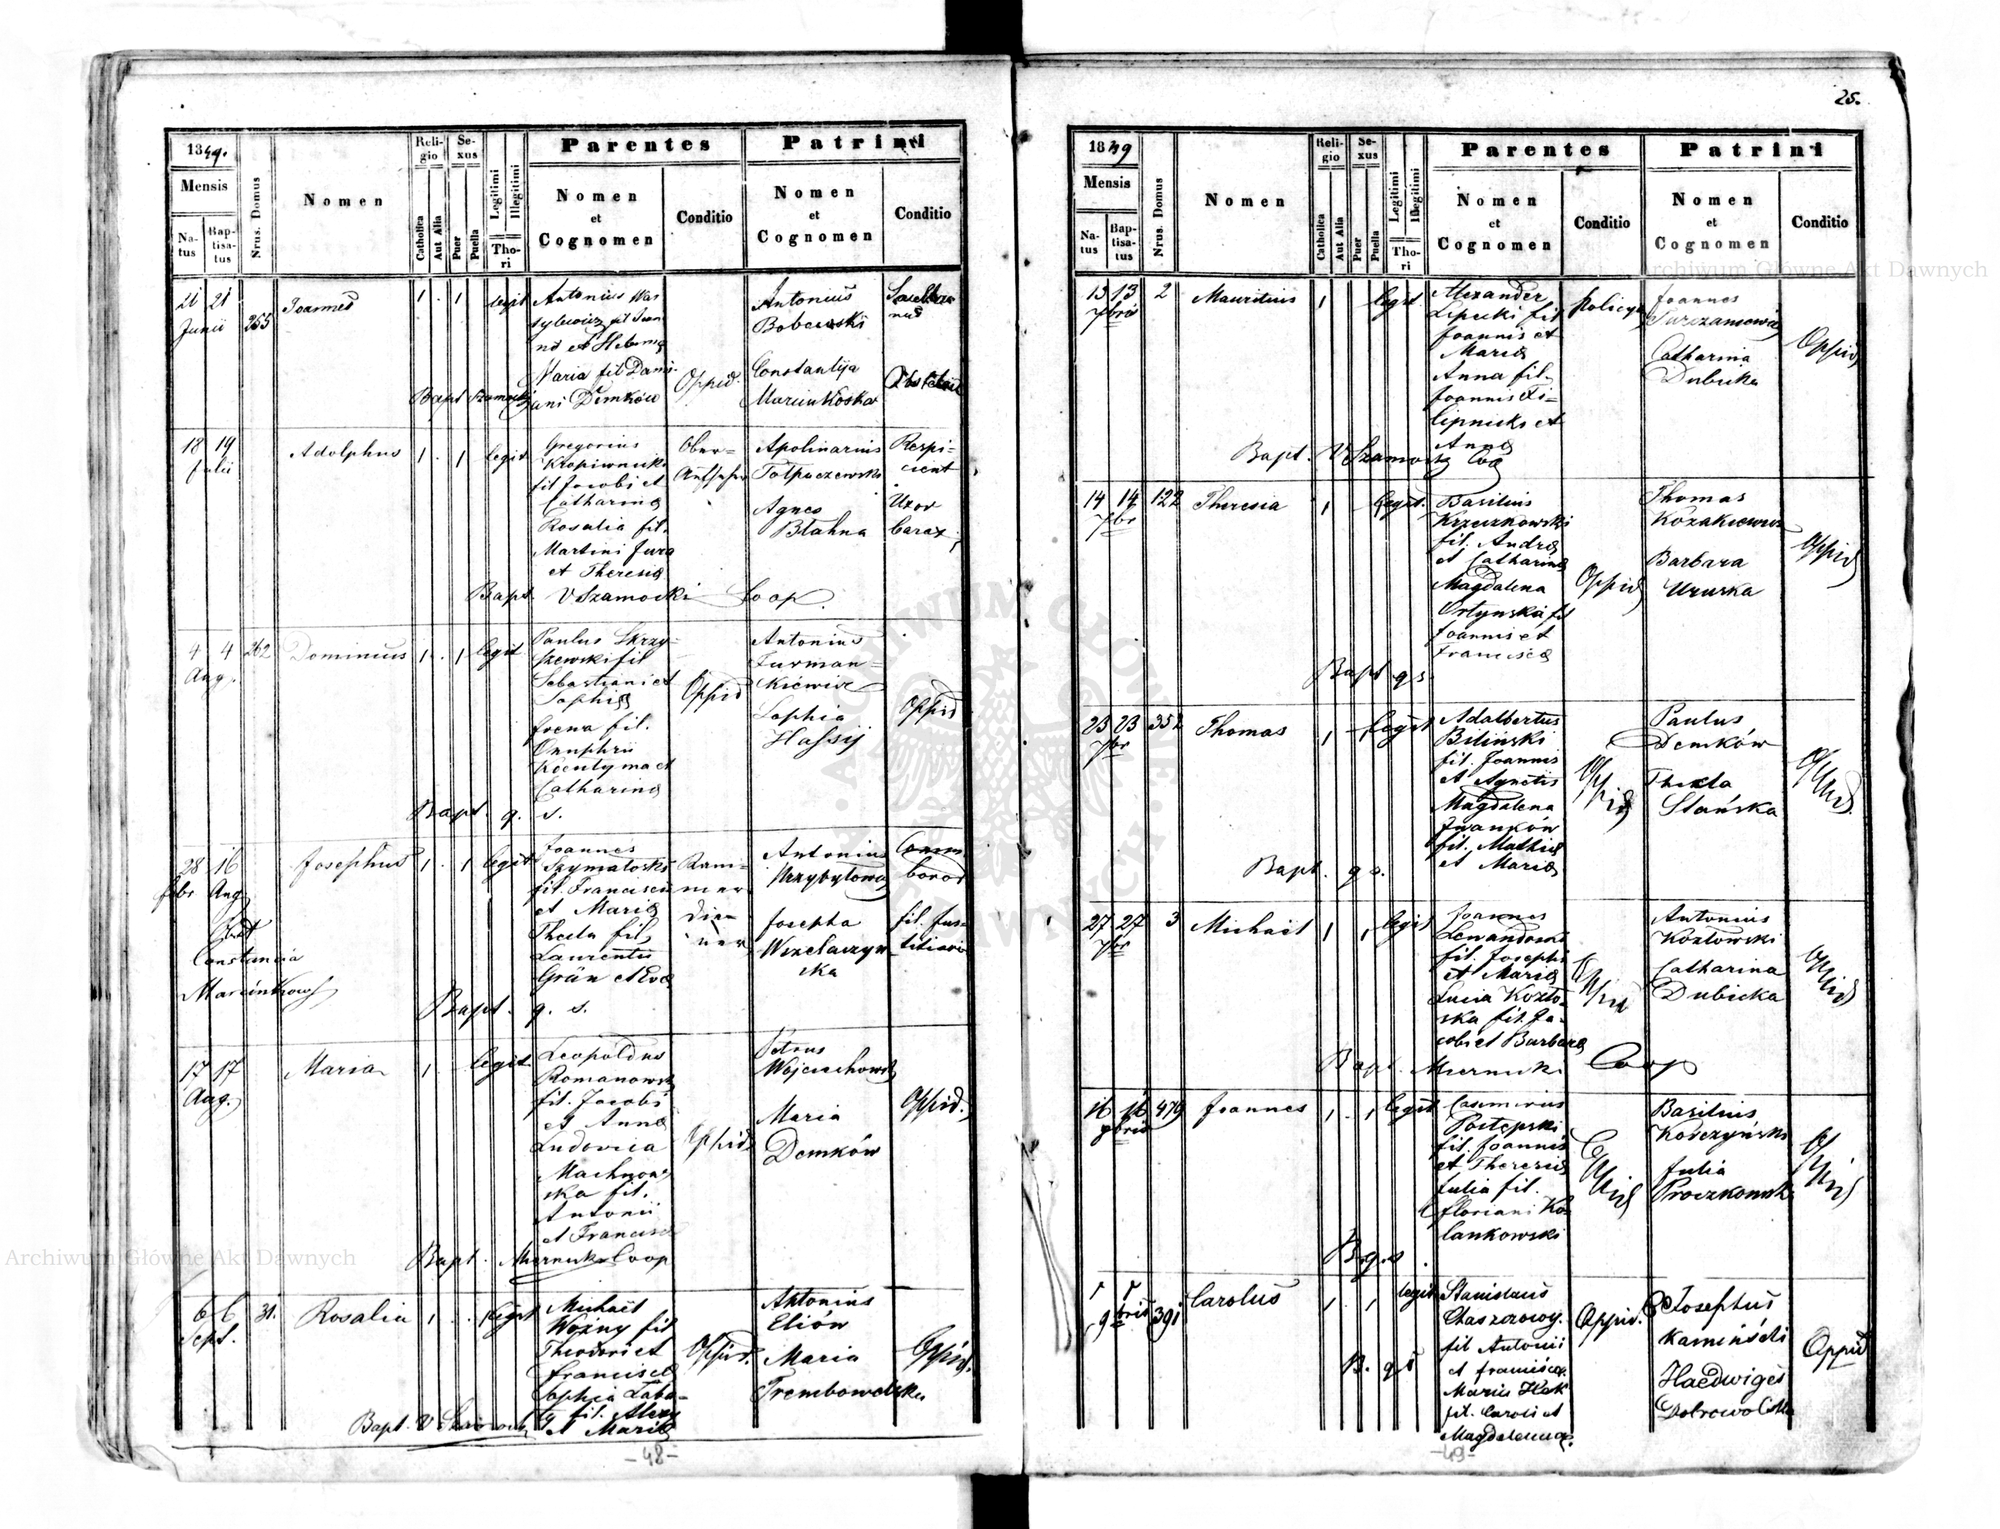 25.
1849.
Mensis
Na-
tus
Bap-
tisa-
tus
Nrus. Domus
Nomen
Reli-
gio
Catholica
Aut Alia
Se-
xus
Puer
Puella
Legitimi
Illegitimi
Tho-
ri
Parentes
Nomen
et
Cognomen
Conditio
Patrini
Nomen
et
Cognomen
Conditio
21 21
Junii
255
Joannes
1 . 1 legit
Antonius Was
nis et Helena
Maria fil Dami-
ani Demków
Oppid.
Antonius
Bobowski
Constantija
Marcinkoska
Bapt Szamocki
18 19
Julii
Adolphus
1 . 1 legit
Gregorius
Kropiwnicki
fil Jacobi et
Catharina
Rosalia fil.
Martini Jura
et Theresia
Ober-
Aufseher
Apolinarius
Tolpuczewski
Agnes
Blahna
Respi-
cient
Uxor
Bapt. V Szamocki Coop.
4 4
Aug.
262
Dominicus
1 . 1 legit
Paulus Skrzy-
szewski fil
Sebastiani et
Sophia
Irena fil.
Onuphrii
et
Catharina
Oppid
Antonius
Furman-
kiewicz
Sophia
Hassij
Oppid
Bapt. q. s.
28 16
febr Aug
Obst
Constancia
Marcinkows
Josephus
1 . 1 legit
Joannes
Szymatoski
fil. Francisci
et Maria
Thecla fil.
Laurentii
Grün et Eva
Kam-
mer
dien
ner
Antonius
Przybylowsi
Josepha
Wszelaczyn-
ska
fil. Jus-
titiarii
Bapt. q. s.
17 17
Aug.
Maria
1 . legit
Leopoldus
Romanowski
fil. Jacobi
et Anna
Ludovica
Machnow
ska fil.
Antonii
et Francisca
Oppid.
Petrus
Wojciechowski
Maria
Demków
Oppid.
Bapt. Miernicki Coop
6 6
Sept.
31.
Rosalia
1 . . 1 legit
Michael
Woźny fil
Theodori et
Francisca
Sophia
fil. Alexy
et Maria
Oppid.
Antonius
Elión
Maria
Trembowelska
Oppid.
Bapt. V Szamocki
-48-
1849
Mensis
Na-
tus
Bap-
tisa-
tus
Nrus. Domus
Nomen
Reli-
gio
Catholica
Aut Alia
Se-
xus
Puer
Puella
Legitimi
Illegitimi
Tho-
ri
Parentes
Nomen
et
Cognomen
Conditio
Patrini
Nomen
et
Cognomen
Conditio
13 13
7bris
2
Mauritius
1 legit
Alexander
Lipecki fil
Joannis et
Maria
Anna fil.
Joannis Fi-
lipnicki et
Anna
Joannes
Catharina
Dubicka
Oppid
Bapt. V Szamocki Coo
14 14
7br
122
Theresia
1 legit.
Basilius
Krzeczkowski
fil. Andre
et Catharina
Magdalena
Ortynska fil
Joannis et
Francisca
Oppid
Thomas
Kozakiewicz
Barbara
Uruska
Oppid
Bapt q s.
23 23
7br
352
Thomas
1 1 legit
Adalbertus
Biliński
fil. Joannis
et Agnetis
Magdalena
Iwanków
fil. Mathia
et Maria
Oppid
Paulus
Demków
Thekla
Stańska
Oppid.
Bapt. q s.
27 27
7br
3
Michael
1 1 legit
Joannes
Lewandoski
fil. Josephi
et Maria
Lucia Kozło-
ska fil. Ja-
cobi et Barbara
Oppid
Antonius
Kozłowski
Catharina
Dubicka
Oppid
Bapt. Miernicki Coop
16 16
9bris
479
Joannes
1 . 1 legit
Casimirus
Postępski
fil. Joannis
et Theresia
Julia fil.
Floriani Ko
lankowski
Oppid
Basilius
Korczyński
Julia
Oppid
B. q. s.
9bris
391
Carolus
1 . 1 legit
Stanislaus
fil Antonii
et Francisca
Maria Hak
fil. Caroli et
Magdalena.
Oppid.
Josephus
Kamiński
Haedwiges
Oppid
B. q s
-49-
Archiwum Główne Akt Dawnych
Archiwum Główne Akt Dawnych
ARCHIWUM GŁÓWNE AKT DAWNYCH